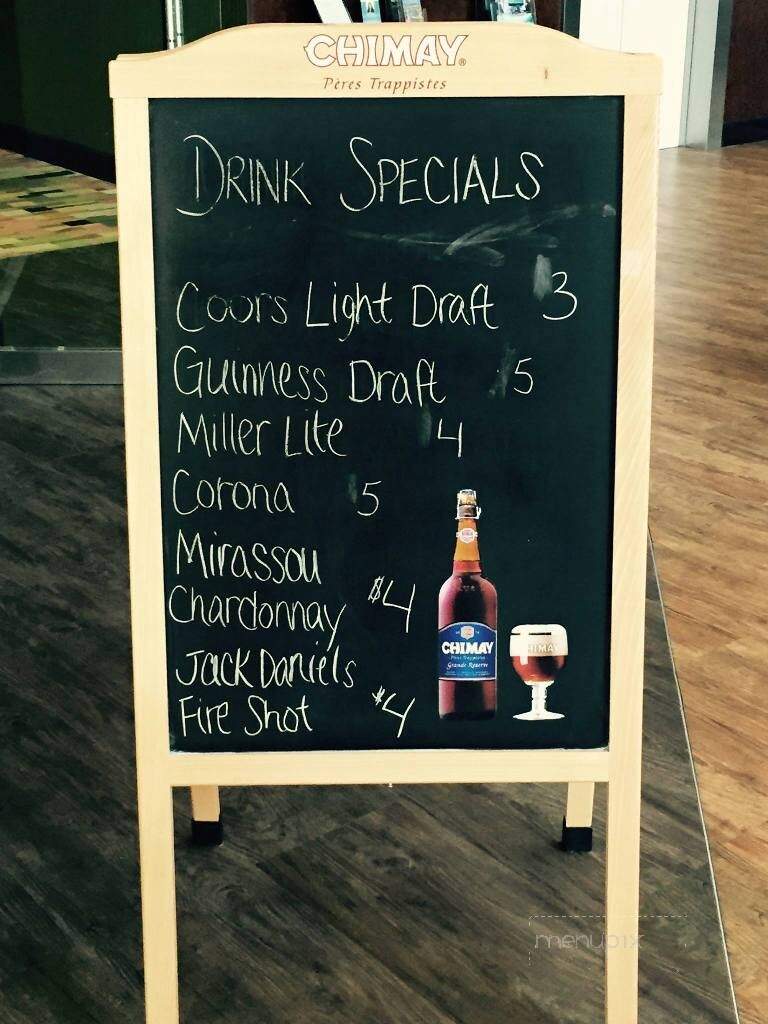 CHIMAY®
Pères Trappistes
DRINK SPECIALS
Coors Light Draft 3
Guinness Draft 5
Miller Lite 4
Corona 5
Mirassou
Chardonnay $4
Jack Daniels
Fire Shot $4
CHIMAY
Grande Réserve
CHIMAY
menupix